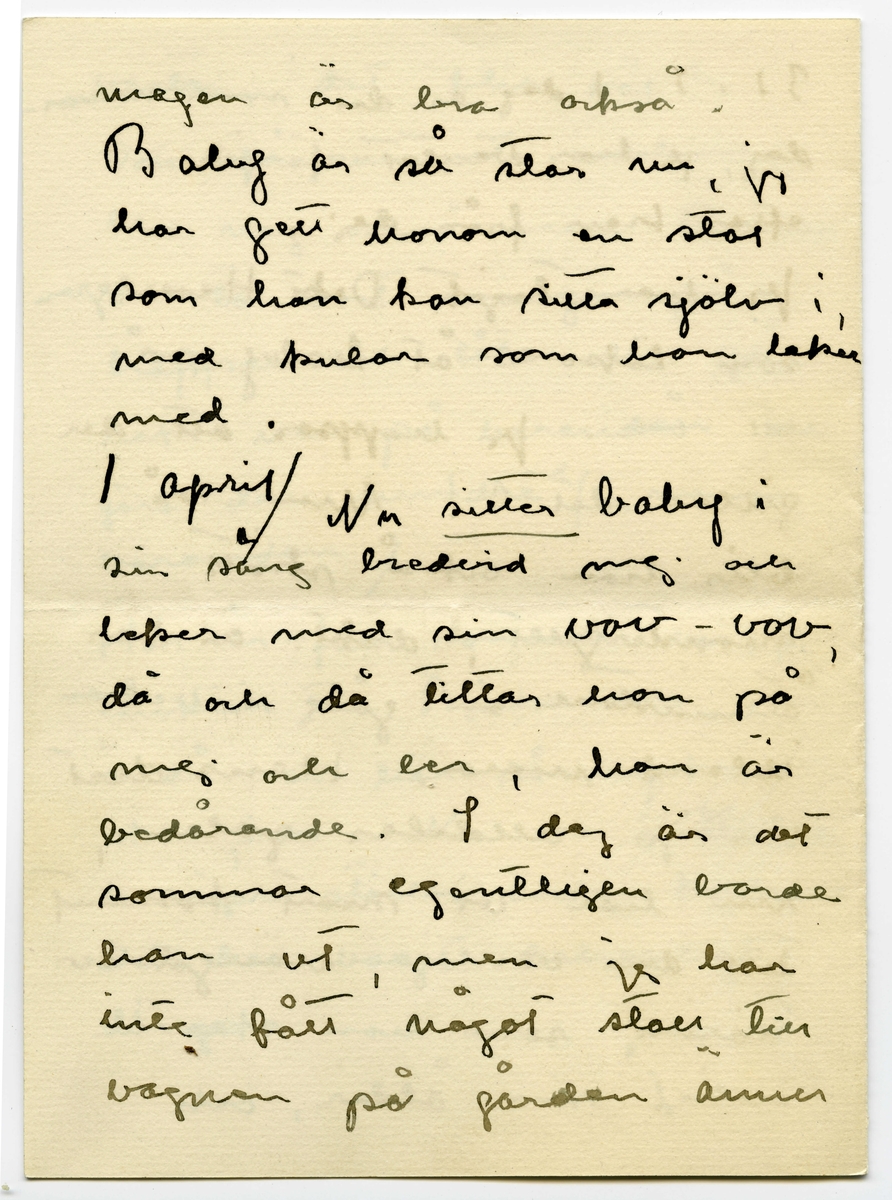 magen är bra också.
Baby är så stor nu, jag
har gett honom en stol
som han kan sitta själv i,
med kulor som han leker
med.
1 april/ Nu sitter baby i
sin säng bredvid mej och
leker med sin vov-vov,
då och då tittar han på
mej och ler, han är
bedårande. I dag är det
sommar egentligen borde
han ut, men jag har
inte fått något stall till
vagnen på gården ännu